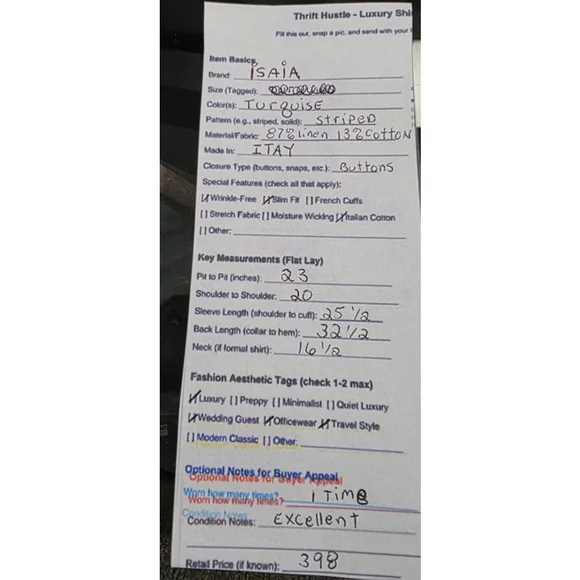 Thrift Hustle - Luxury Shi
Fill this out, snap a pic, and send with your
Item Basics
Brand: ISAIA
Size (Tagged):
Color(s): Turquise
Pattern (e.g., striped, solid): striped
Material/Fabric: 87% linen 13% cotton
Made In: ITAY
Closure Type (buttons, snaps, etc.): Buttons
Special Features (check all that apply):
[✓] Wrinkle-Free [✓] Slim Fit [ ] French Cuffs
[ ] Stretch Fabric [ ] Moisture Wicking [✓] Italian Cotton
[ ] Other:
Key Measurements (Flat Lay)
Pit to Pit (inches): 23
Shoulder to Shoulder: 20
Sleeve Length (shoulder to cuff): 25 1/2
Back Length (collar to hem): 32 1/2
Neck (if formal shirt): 16 1/2
Fashion Aesthetic Tags (check 1-2 max)
[✓] Luxury [ ] Preppy [ ] Minimalist [ ] Quiet Luxury
[✓] Wedding Guest [✓] Officewear [✓] Travel Style
[ ] Modern Classic [ ] Other:
Optional Notes for Buyer Appeal
Worn how many times? 1 Time
Condition Notes: Excellent
Retail Price (if known): 398